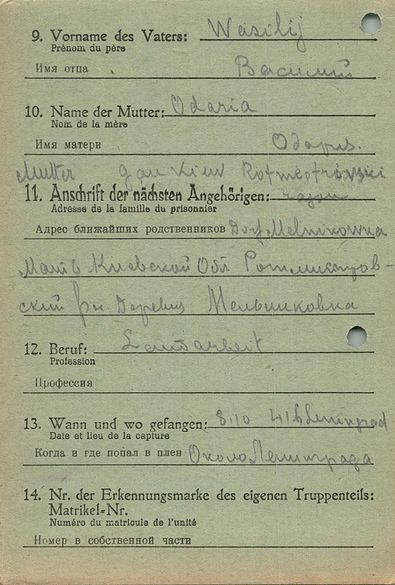 9. Vorname des Vaters: Wasilij
Prénom du père
Имя отца Василий
10. Name der Mutter: Odaria
Nom de la mère
Имя матери Одария
Mutter gau Kiew Rotmestrowski
11. Anschrift der nächsten Angehörigen: rayon
Adresse de la famille du prisonnier
Адрес ближайших родственников Dorf Melnikowka
Мать Киевской Обл Ротмистров-
ский р-н Деревня Мельниковка
12. Beruf: Landarbeit
Profession
Профессия
13. Wann und wo gefangen: 8.10 41 b Leningrad
Date et lieu de la capture
Когда и где попал в плен Около Ленинграда
14. Nr. der Erkennungsmarke des eigenen Truppenteils:
Matrikel-Nr.
Numéro du matricule de l'unité
Номер в собственной части